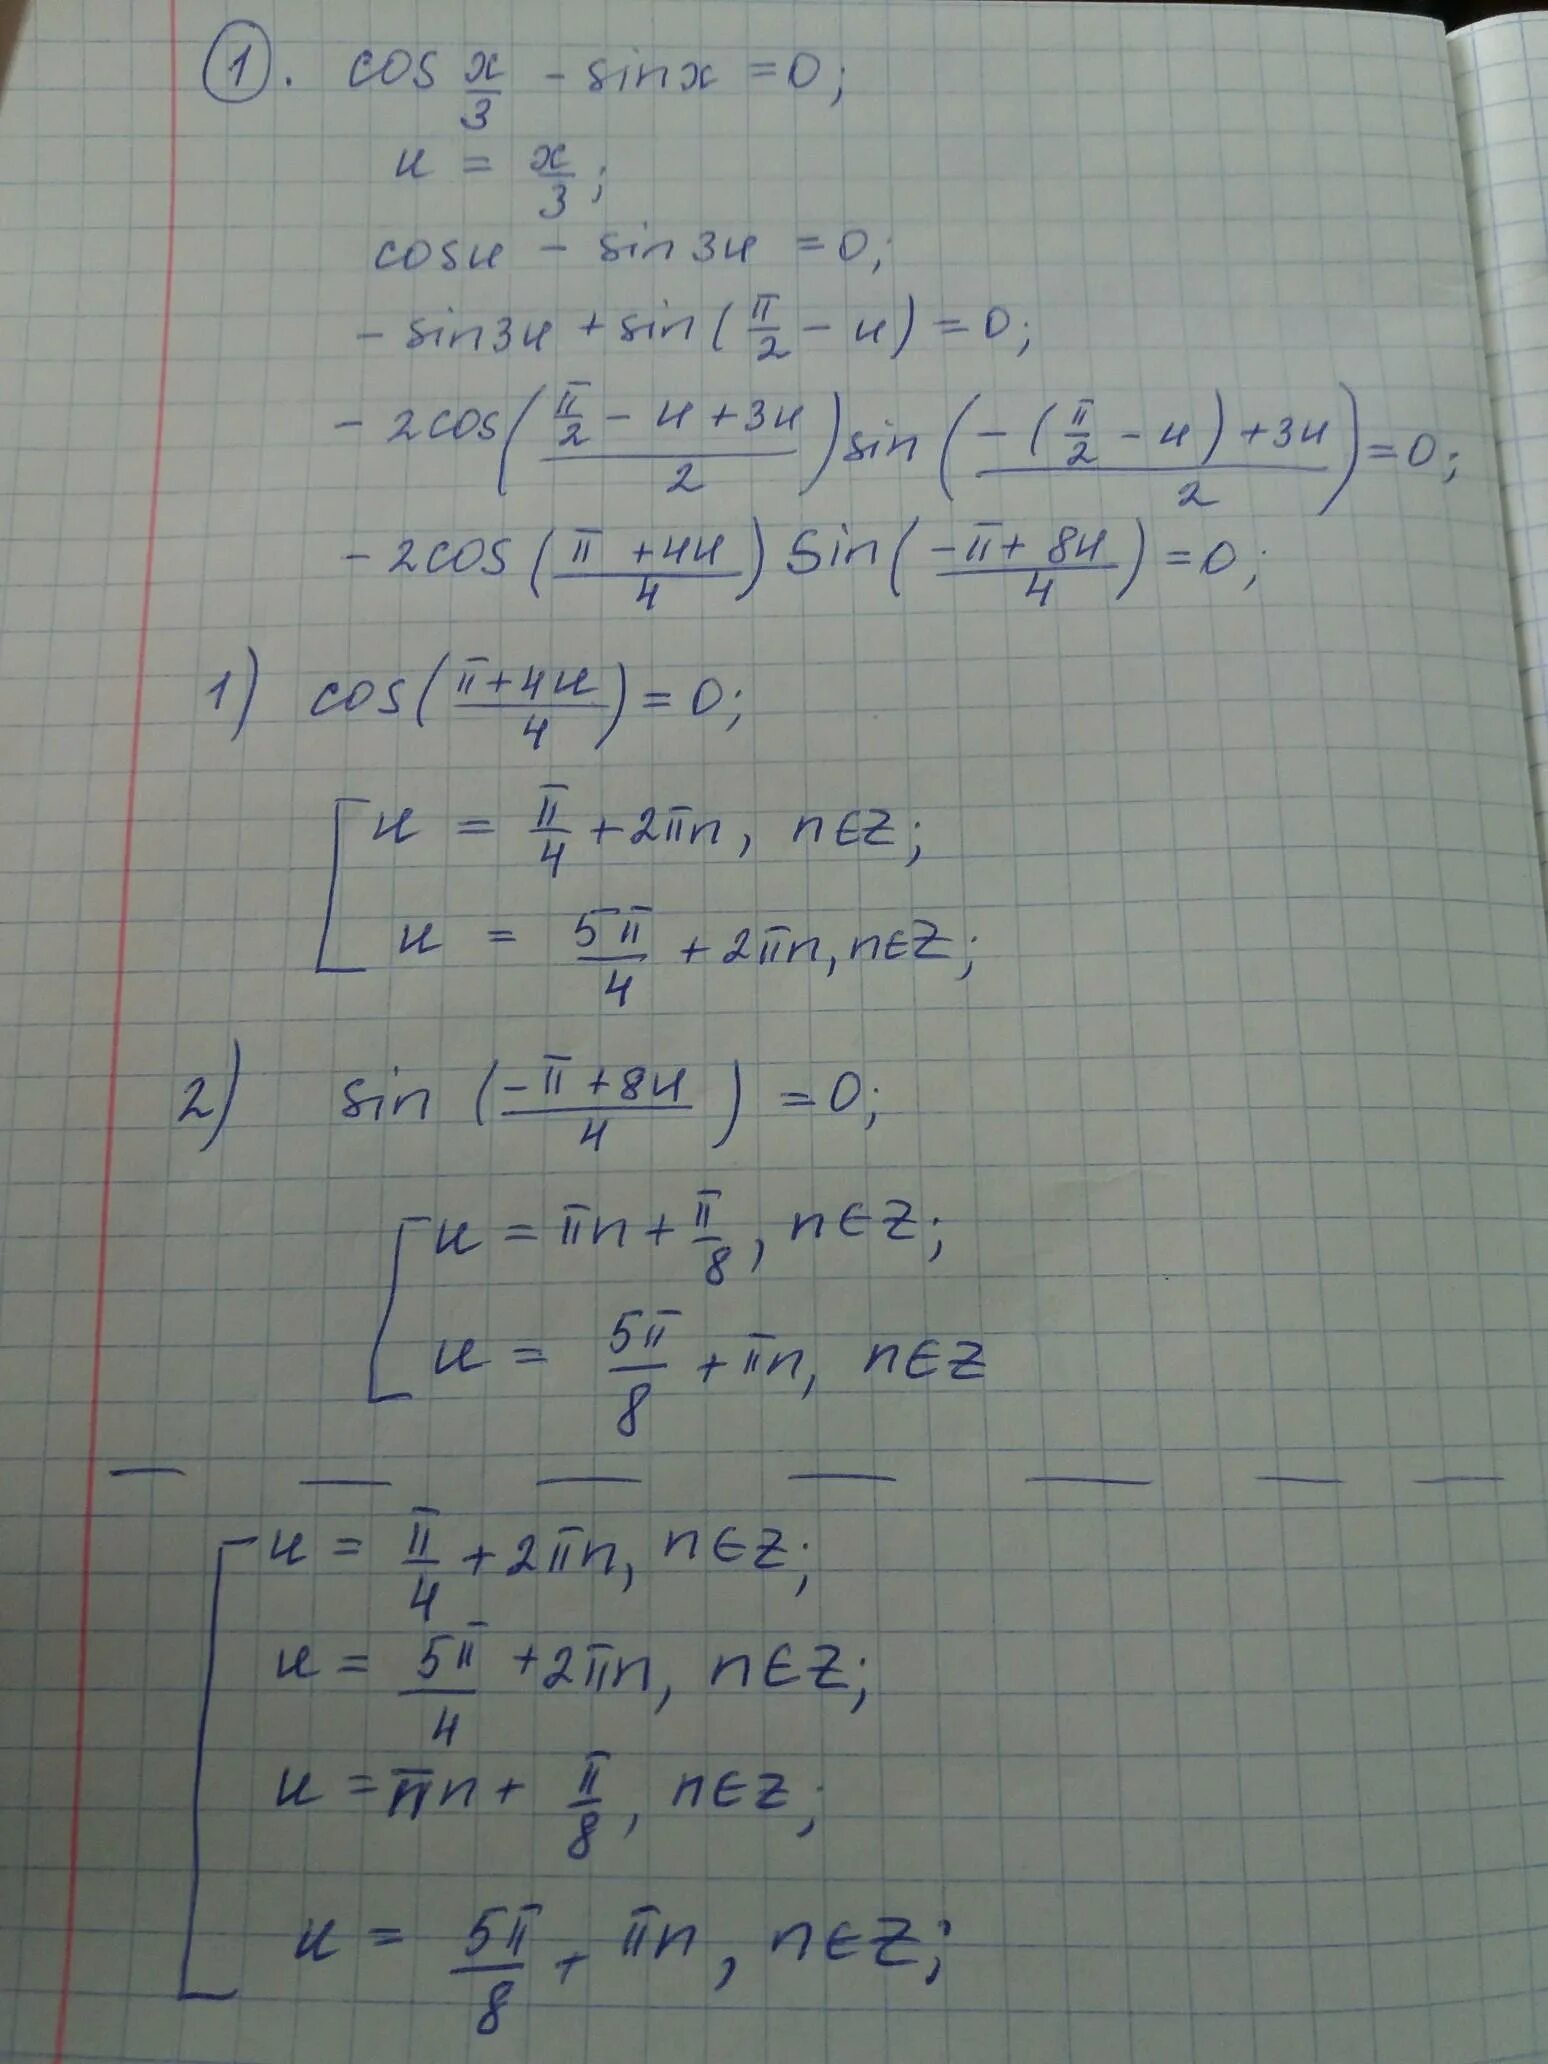 1. cos x/3 - sin x = 0;
u = x/3;
cos u - sin 3u = 0;
- sin 3u + sin(π/2 - u) = 0;
- 2cos((π/2 - u + 3u)/2) sin((-(π/2 - u) + 3u)/2) = 0;
- 2cos((π + 4u)/4) Sin((-π + 8u)/4) = 0;
1) cos((π + 4u)/4) = 0;
[ u = π/4 + 2πn, n∈Z;
u = 5π/4 + 2πn, n∈Z;
2) sin((-π + 8u)/4) = 0;
[ u = πn + π/8, n∈Z;
u = 5π/8 + πn, n∈Z
[ u = π/4 + 2πn, n∈Z;
u = 5π/4 + 2πn, n∈Z;
u = πn + π/8, n∈Z;
u = 5π/8 + πn, n∈Z;